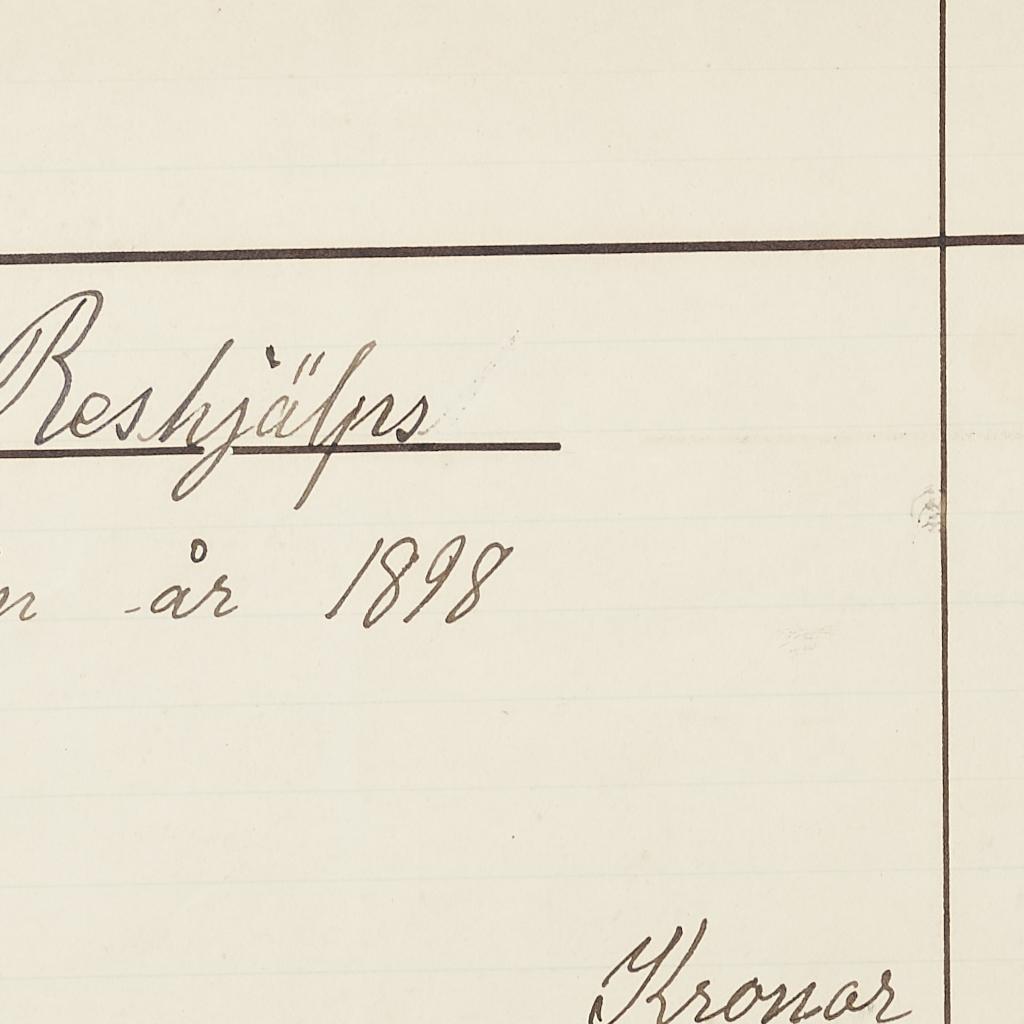 Reshjälps
år 1898
Kronor